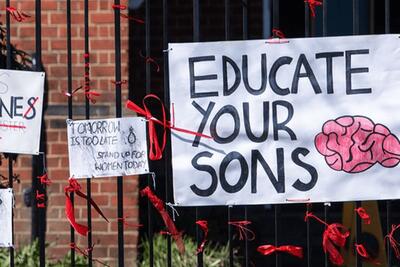 NES
TOMORROW
IS TOO LATE
STAND UP FOR
WOMEN TODAY
EDUCATE
YOUR
SONS